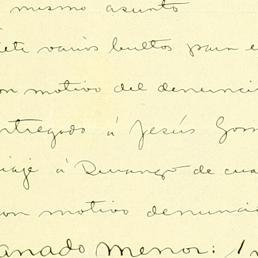 mismo asunto
varios bultos para e
on motivo del denunci
ntregado á Jesús Gom
iaje á Durango de cua
on motivo denuncio
anado menor: